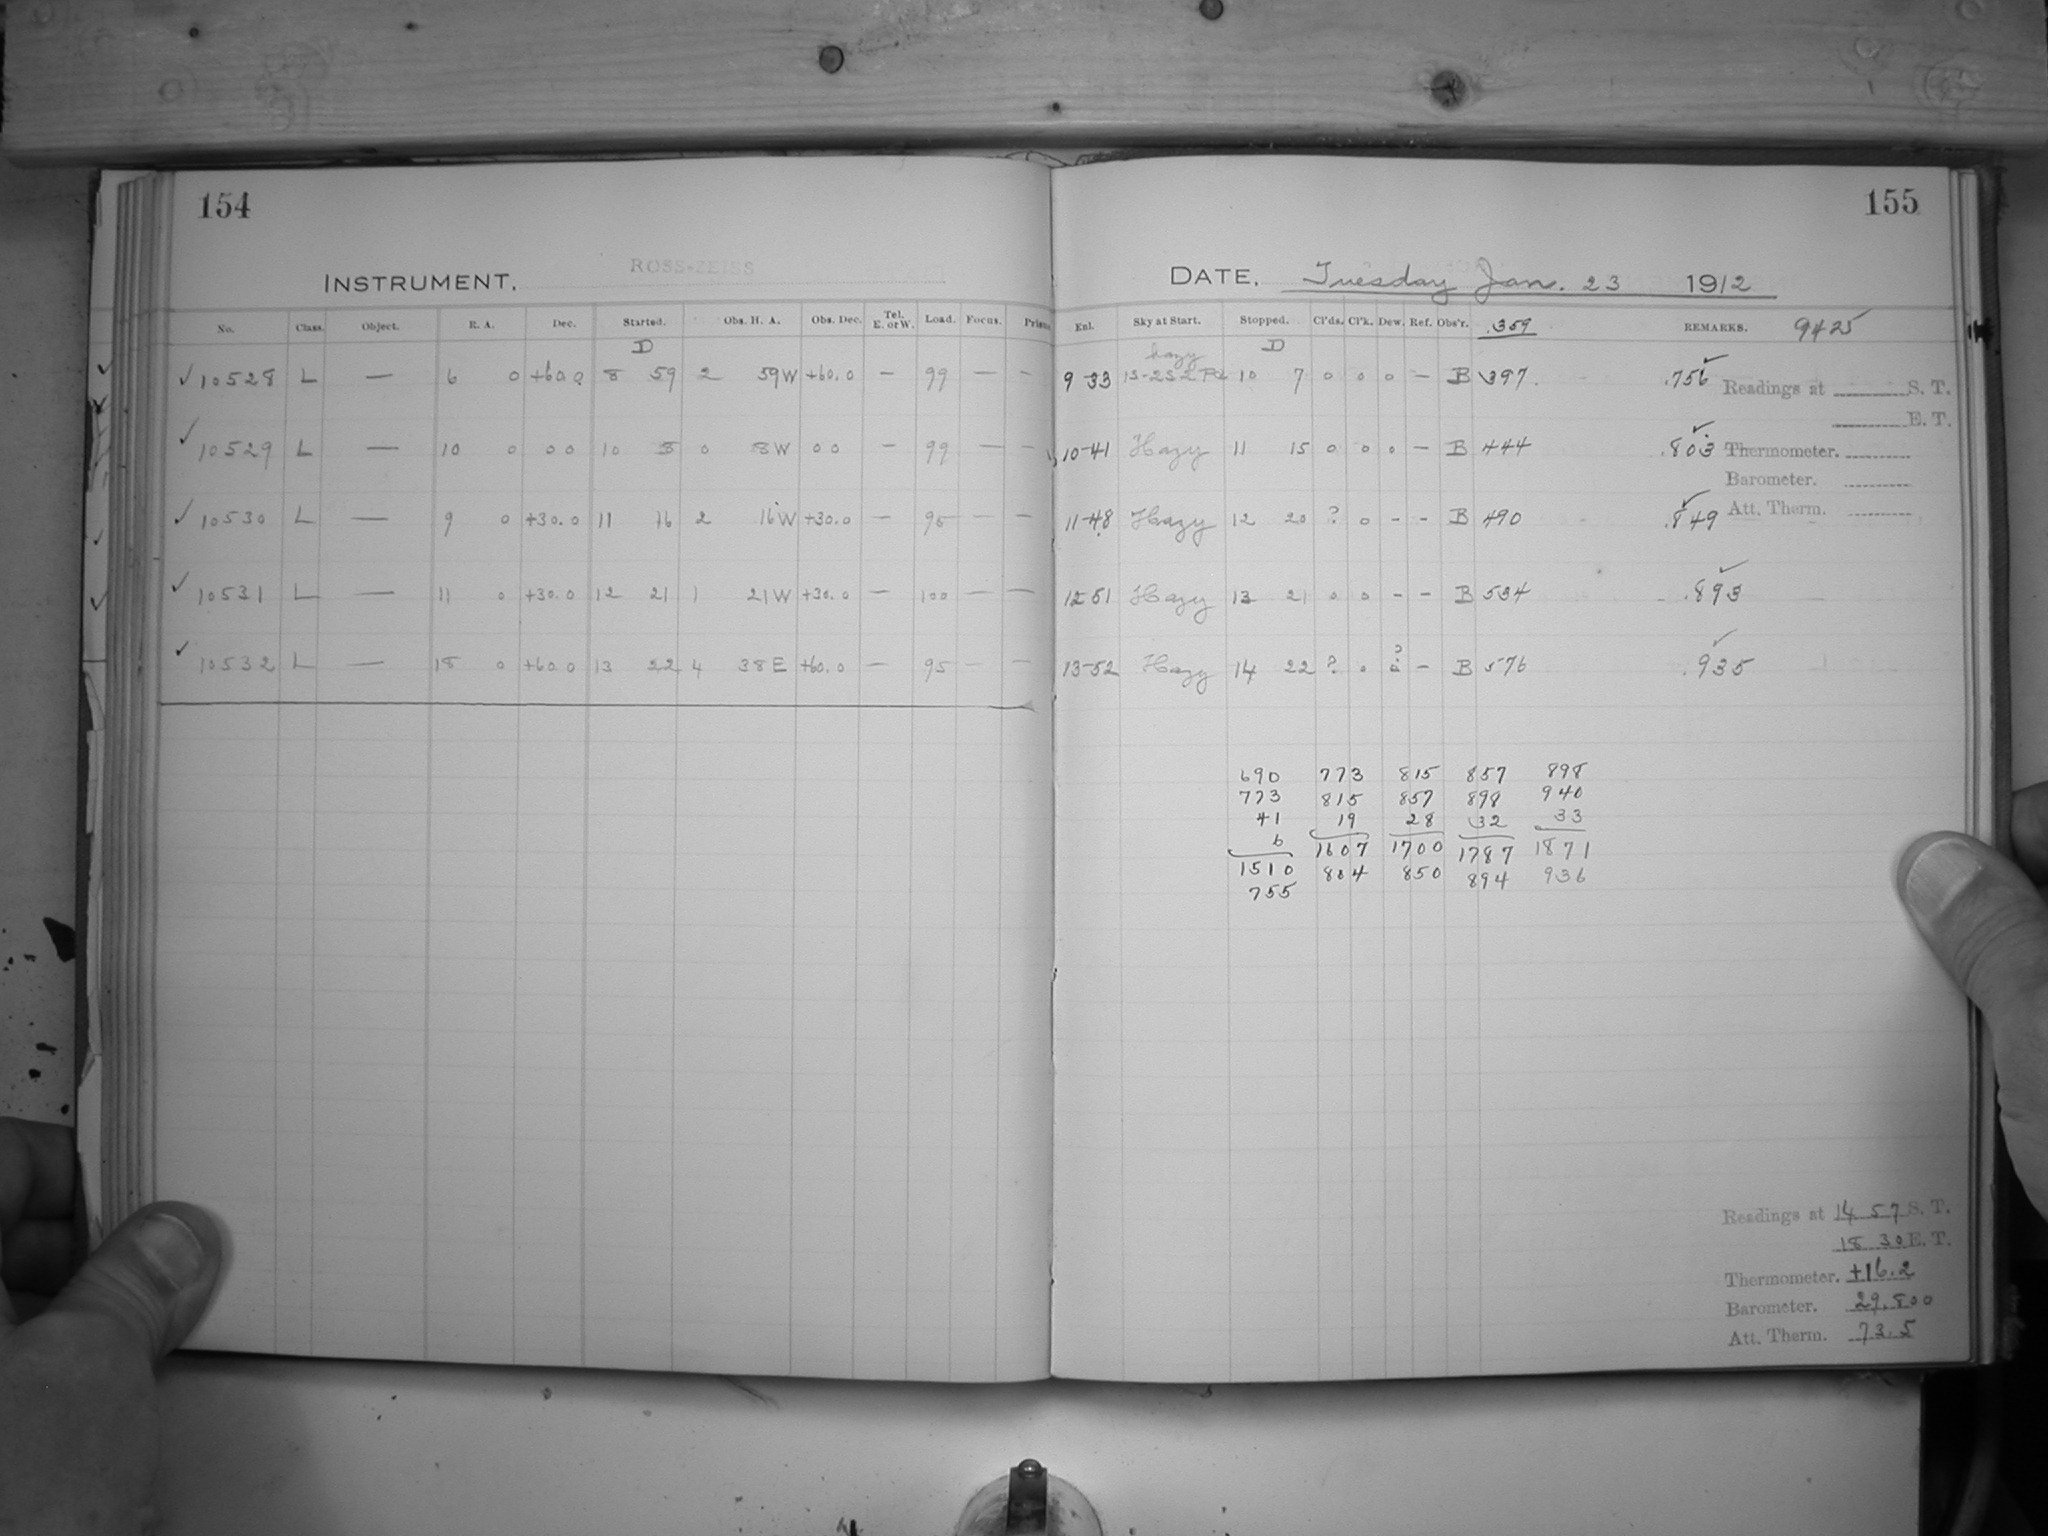 154
155
ROSS-ZEISS
INSTRUMENT.
DATE. Tuesday Jan. 23 1912
No. Class. Object. R. A. Dec. Started. Obs. H. A. Obs. Dec. Tel. E. or W. Load. Focus. Prism Enl. Sky at Start. Stopped. Cl'ds. Cl'k. Dew. Ref. Obs'r. .359 REMARKS. 9425
D D
hazy
✓ 10528 L — 6 0 +60.0 8 59 2 59W +60.0 — 99 — — 9-33 1S-2S 2 Pd 10 7 0 0 0 — B 397 .756
Readings at S. T.
E. T.
✓ 10529 L — 10 0 0 0 10 8 0 8W 0 0 — 99 — — 10-41 Hazy 11 15 0 0 0 — B 444 .803
Thermometer.
Barometer.
✓ 10530 L — 9 0 +30.0 11 16 2 16W +30.0 — 95 — — 11-48 Hazy 12 20 ? 0 - - B 490 .849
Att. Therm.
✓ 10531 L — 11 0 +30.0 12 21 1 21W +30.0 — 100 — — 12-51 Hazy 13 21 0 0 - - B 534 .893
✓ 10532 L — 18 0 +60.0 13 22 4 38E +60.0 — 95 — — 13-52 Hazy 14 22 ? 0 ? — B 576 .935
690 773 815 857 898
773 815 857 898 940
41 19 28 32 33
6 1607 1700 1787 1871
1510 804 850 894 936
755
Readings at 14 57 S. T.
18 30 E. T.
Thermometer. +16.2
Barometer. 29.800
Att. Therm. 73.5